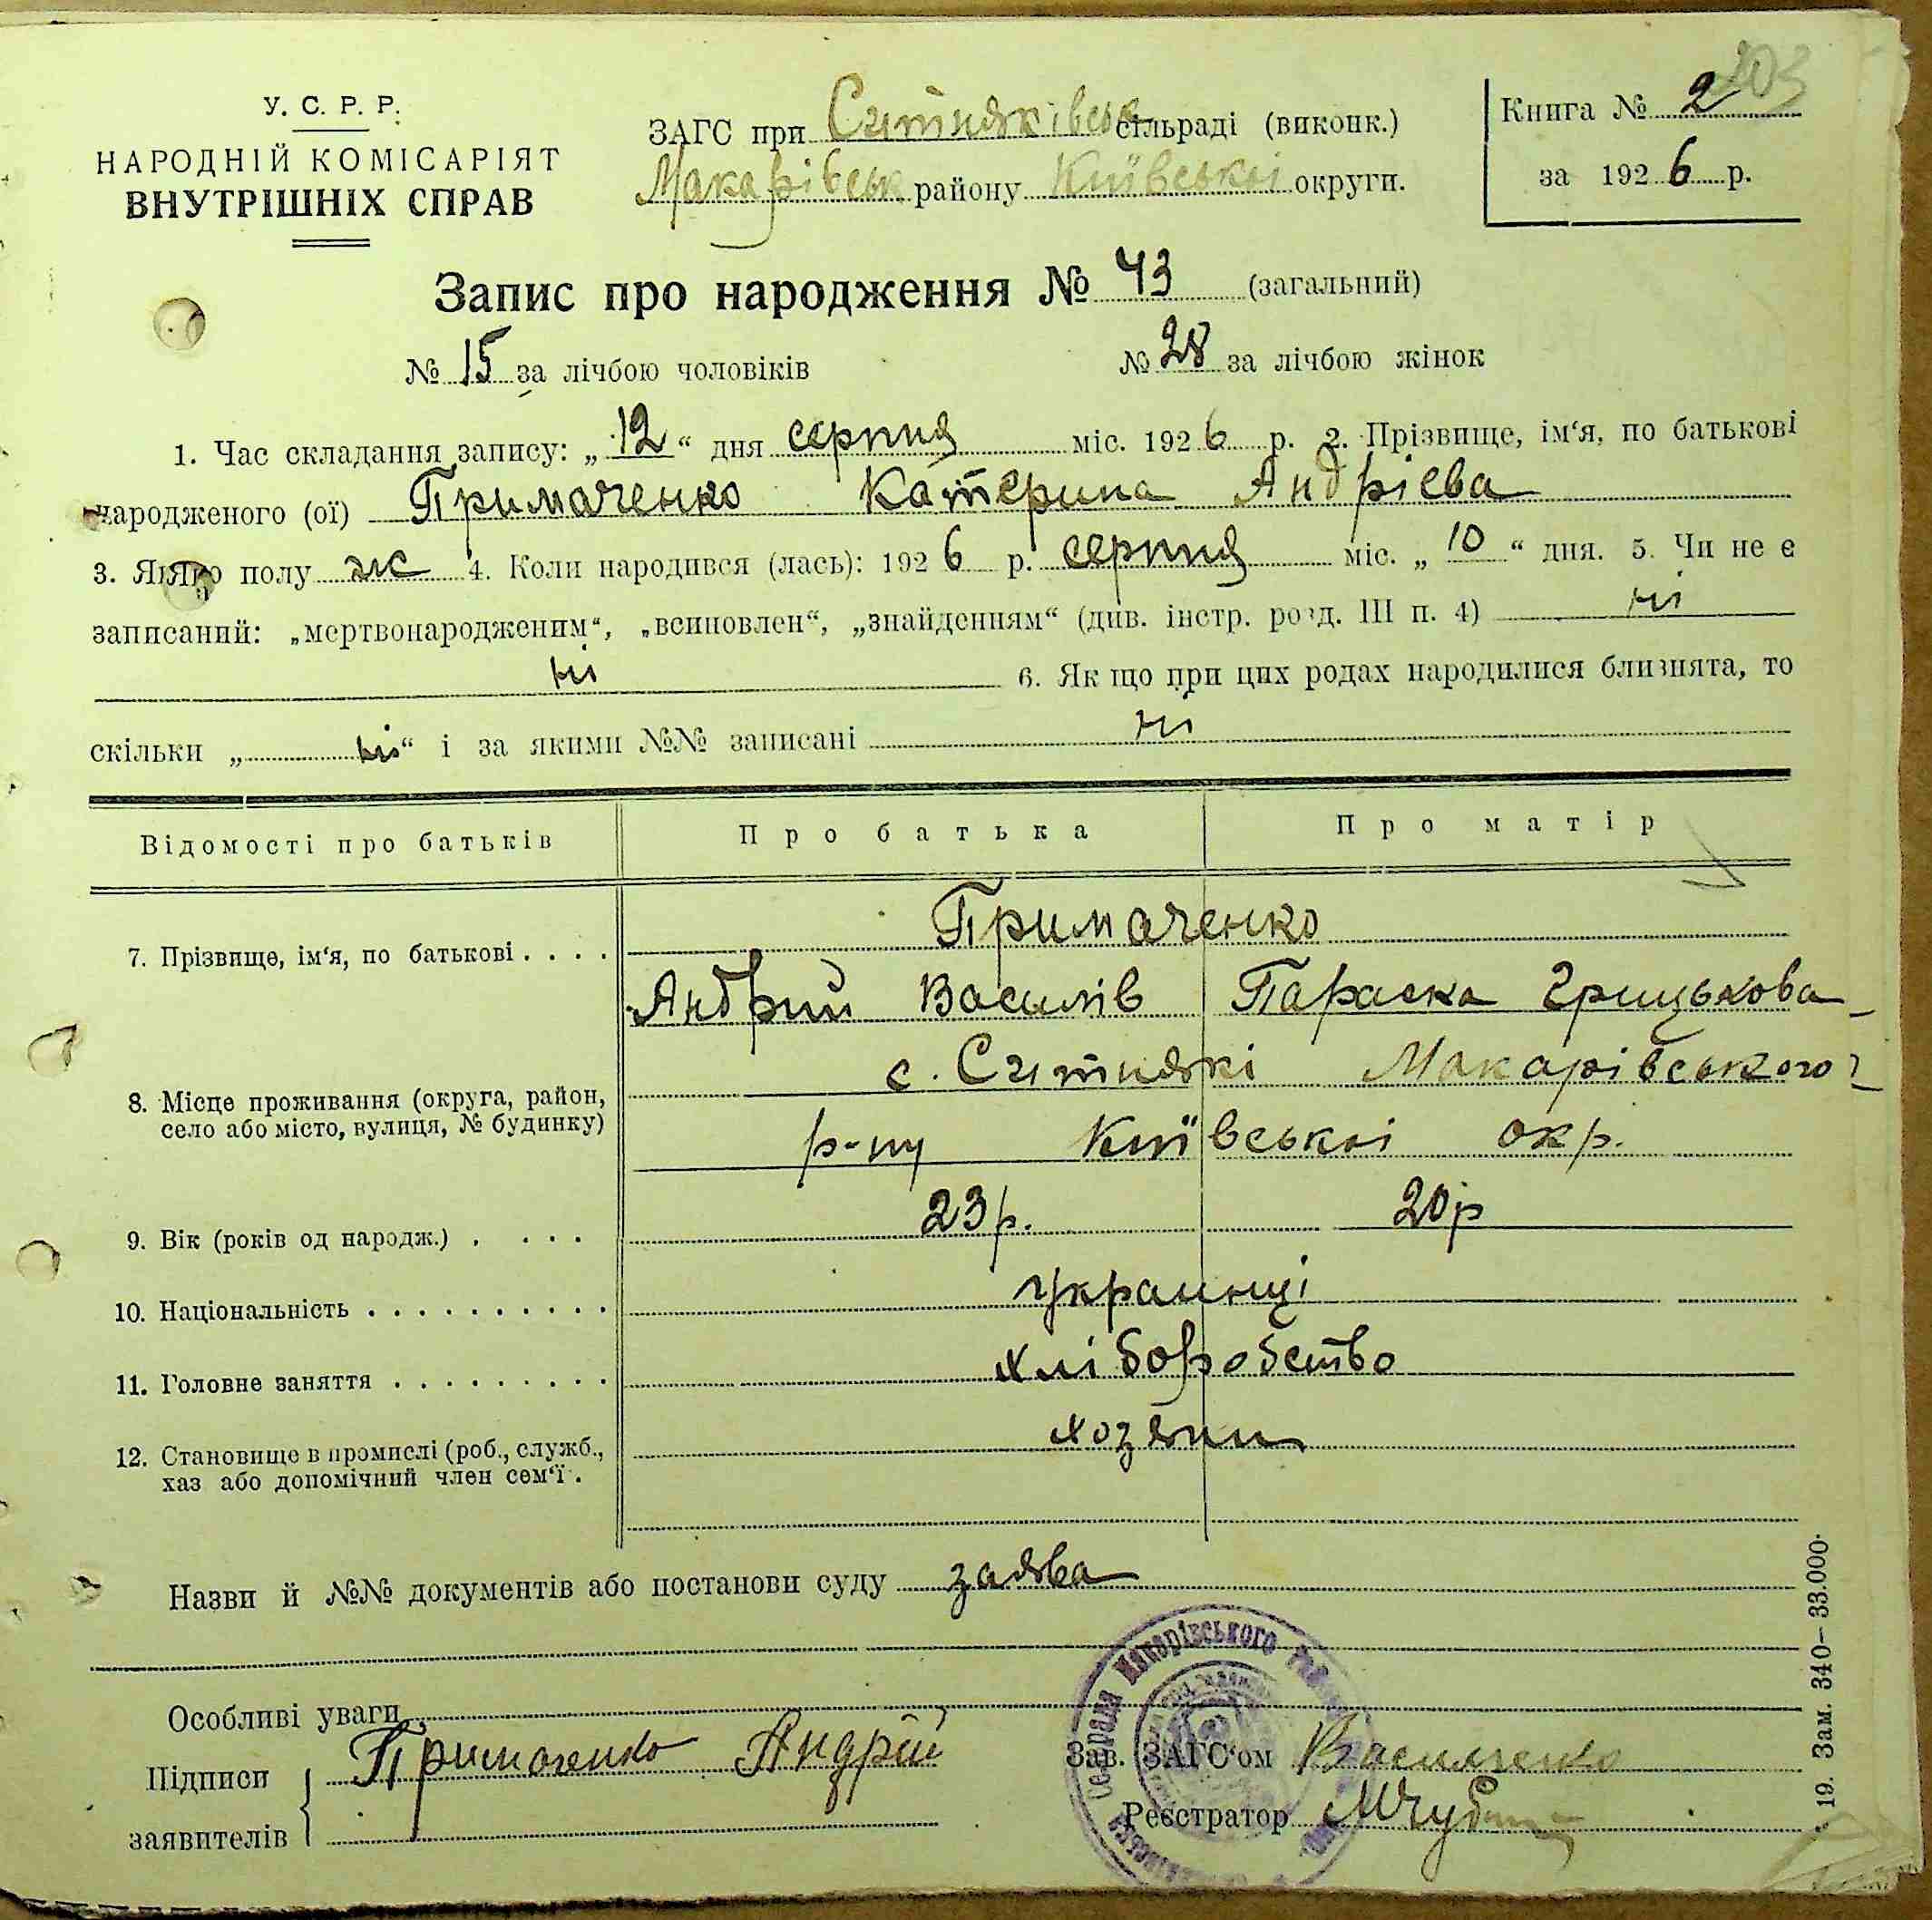 203
У. С. Р. Р.
НАРОДНІЙ КОМІСАРІЯТ
ВНУТРІШНІХ СПРАВ
ЗАГС при Ситняківськ сільраді (виконк.)
Макарівськ району Київської округи.
Книга № 2
за 1926 р.
Запис про народження № 43 (загальний)
№ 15 за лічбою чоловіків № 28 за лічбою жінок
1. Час складання запису: „12“ дня серпня міс. 1926 р. 2. Прізвище, ім‘я, по батькові
народженого (ої) Примаченко Катерина Андрієва
3. Якого полу ж 4. Коли народився (лась): 1926 р. серпня міс. „10“ дня. 5. Чи не є
записаний: „мертвонародженим“, „всиновлен“, „знайденням“ (див. інстр. розд. III п. 4) ні
ні 6. Як що при цих родах народилися близнята, то
скільки „ ні“ і за якими №№ записані ні
Відомості про батьків Про батька Про матір
7. Прізвище, ім‘я, по батькові . . . . Примаченко
Андрий Василів Параска Грицькова
8. Місце проживання (округа, район, село або місто, вулиця, № будинку) с. Ситнякі Макарівського
р-ну Київськоі окр.
9. Вік (років од народж.) . . . . 23 р. 20 р
10. Національність . . . . . . . . . . Украинці
11. Головне заняття . . . . . . . . . хліборобство
12. Становище в промислі (роб., служб., хозяпи
хаз або допомічний член сем‘ї .
Назви й №№ документів або постанови суду заява
Особливі уваги
Підписи Примаченко Андрій
заявителів
Зав. ЗАГС‘ом Василенко
Реєстратор
Сельрада Макарівського
19. Зам. 340—33.000.